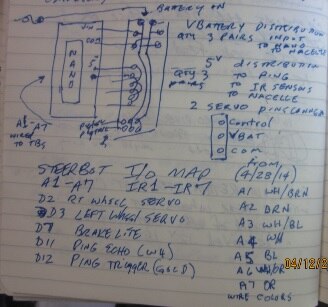 BATTERY IN
VBATTERY DISTRIBUTION
QTY 3 PAIRS INPUT
TO NANO
TO NACELLE
5V DISTRIBUTION
QTY 3 TO PING
TO IR SENSORS
TO NACELLE
2 SERVO
Control
VBAT
COM
NANO
A1-A7
WIRED
TO TBS
STEERBOT I/O MAP
A1-A7 IR1-IR7
D2 RT WHEEL SERVO
D3 LEFT WHEEL SERVO
D7 BRAKE LITE
D11 PING ECHO (WH)
D12 PING TRIGGER (GOLD)
(4/28/14)
A1 WH/BRN
A2 BRN
A3 WH/BL
A4 WH
A5 BL
A6 WH/OR
A7 OR
WIRE COLORS
04/12/2